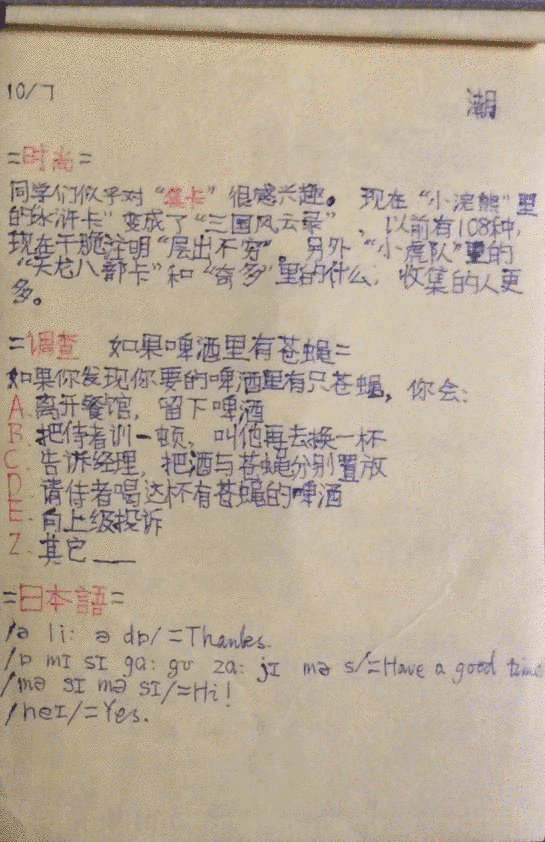 10/7
潮
=时尚=
同学们似乎对“集卡”很感兴趣。现在“小浣熊”里
的“水浒卡”变成了“三国风云录”,以前有108种,
现在干脆注明“层出不穷”。另外“小虎队”里的
“天龙八部卡”和“奇多”里的什么,收集的人更
多。
=调查 如果啤酒里有苍蝇=
如果你发现你要的啤酒里有只苍蝇,你会:
A.离开餐馆,留下啤酒
B.把侍者训一顿,叫他再去换一杯
C.告诉经理,把酒与苍蝇分别置放
D.请侍者喝这杯有苍蝇的啤酒
E.向上级投诉
Z.其它___
=日本語=
/ə li: ə dɒ/=Thanks.
/ɒ mɪ sɪ ga: gʊ za: jɪ mə s/=Have a good time
/mə sɪ mə sɪ/=Hi!
/heɪ/=Yes.